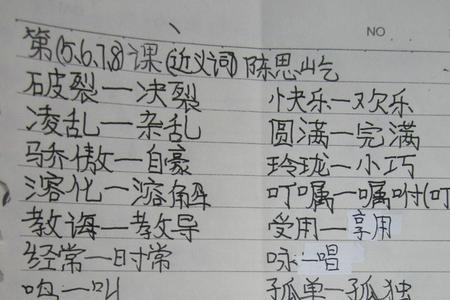 NO
第(5.6.7.8)课(近义词)陈思屹
破裂一决裂 快乐一欢乐
凌乱一杂乱 圆满一完满
骄傲一自豪 玲珑一小巧
溶化一溶解 叮嘱一嘱咐(叮
教诲一教导 受用一享用
经常一时常 咏一唱
鸣一叫 孤单一孤独